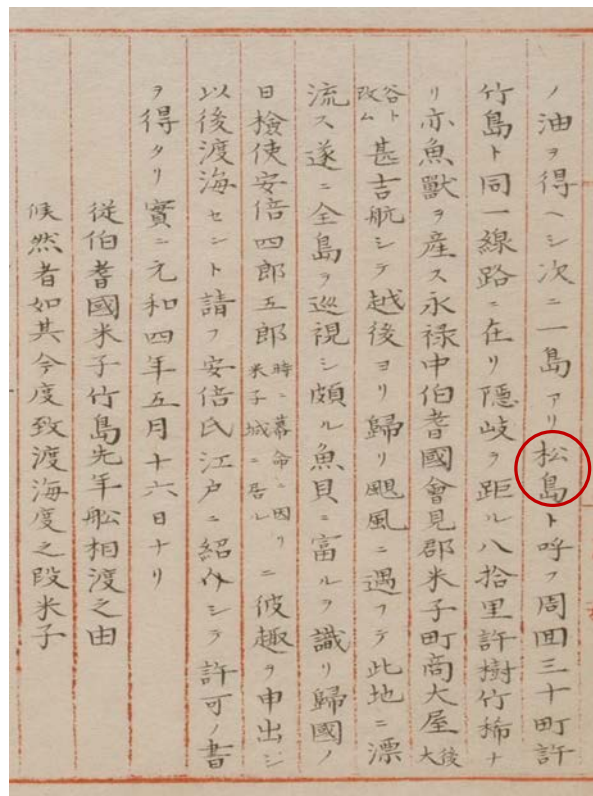 ノ油ヲ得ヘシ次ニ一島アリ松島ト呼フ周回三十町許
竹島ト同一線路ニ在リ隠岐ヲ距ル八拾里許樹竹稀ナ
リ亦魚獣ヲ産ス永禄中伯耆國會見郡米子町商大屋後大
谷ト改ム甚吉航シテ越後ヨリ歸リ颶風ニ遇フテ此地ニ漂
流ス遂ニ全島ヲ巡視シ頗ル魚貝ニ富ルヲ識リ歸國ノ
日檢使安倍四郎五郎時ニ幕命ニ因リ米子城ニ居ルニ彼趣ヲ申出シ
以後渡海セント請フ安倍氏江戸ニ紹介シテ許可ノ書
ヲ得タリ實ニ元和四年五月十六日ナリ
従伯耆國米子竹島先年舩相渡之由
候然者如其今度致渡海度之段米子